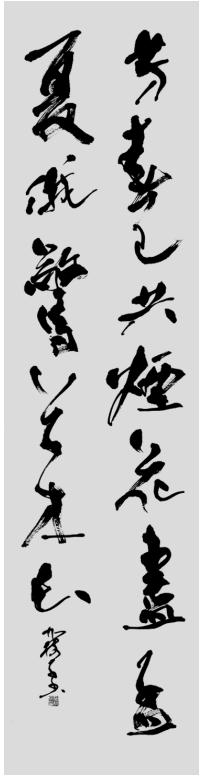 芳春已共煙花盡孟
夏俄驚草木長